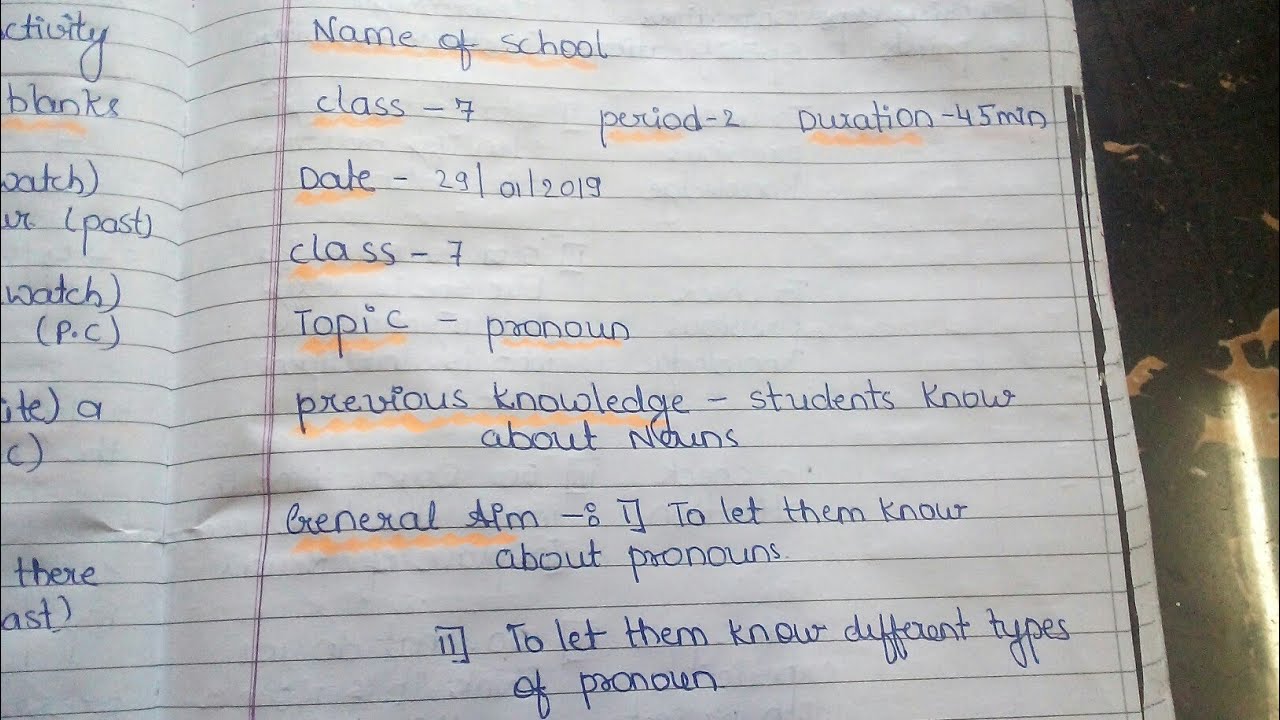 ctivity
blanks
watch)
ur. (past)
watch)
(P.C)
ite) a
c)
there
ast)
Name of school
class - 7 period-2 Duration-45min
Date - 29/01/2019
class - 7
Topic - pronoun
previous knowledge - students know
about Nouns
General Aim -: I] To let them know
about pronouns.
II] To let them know different types
of pronoun